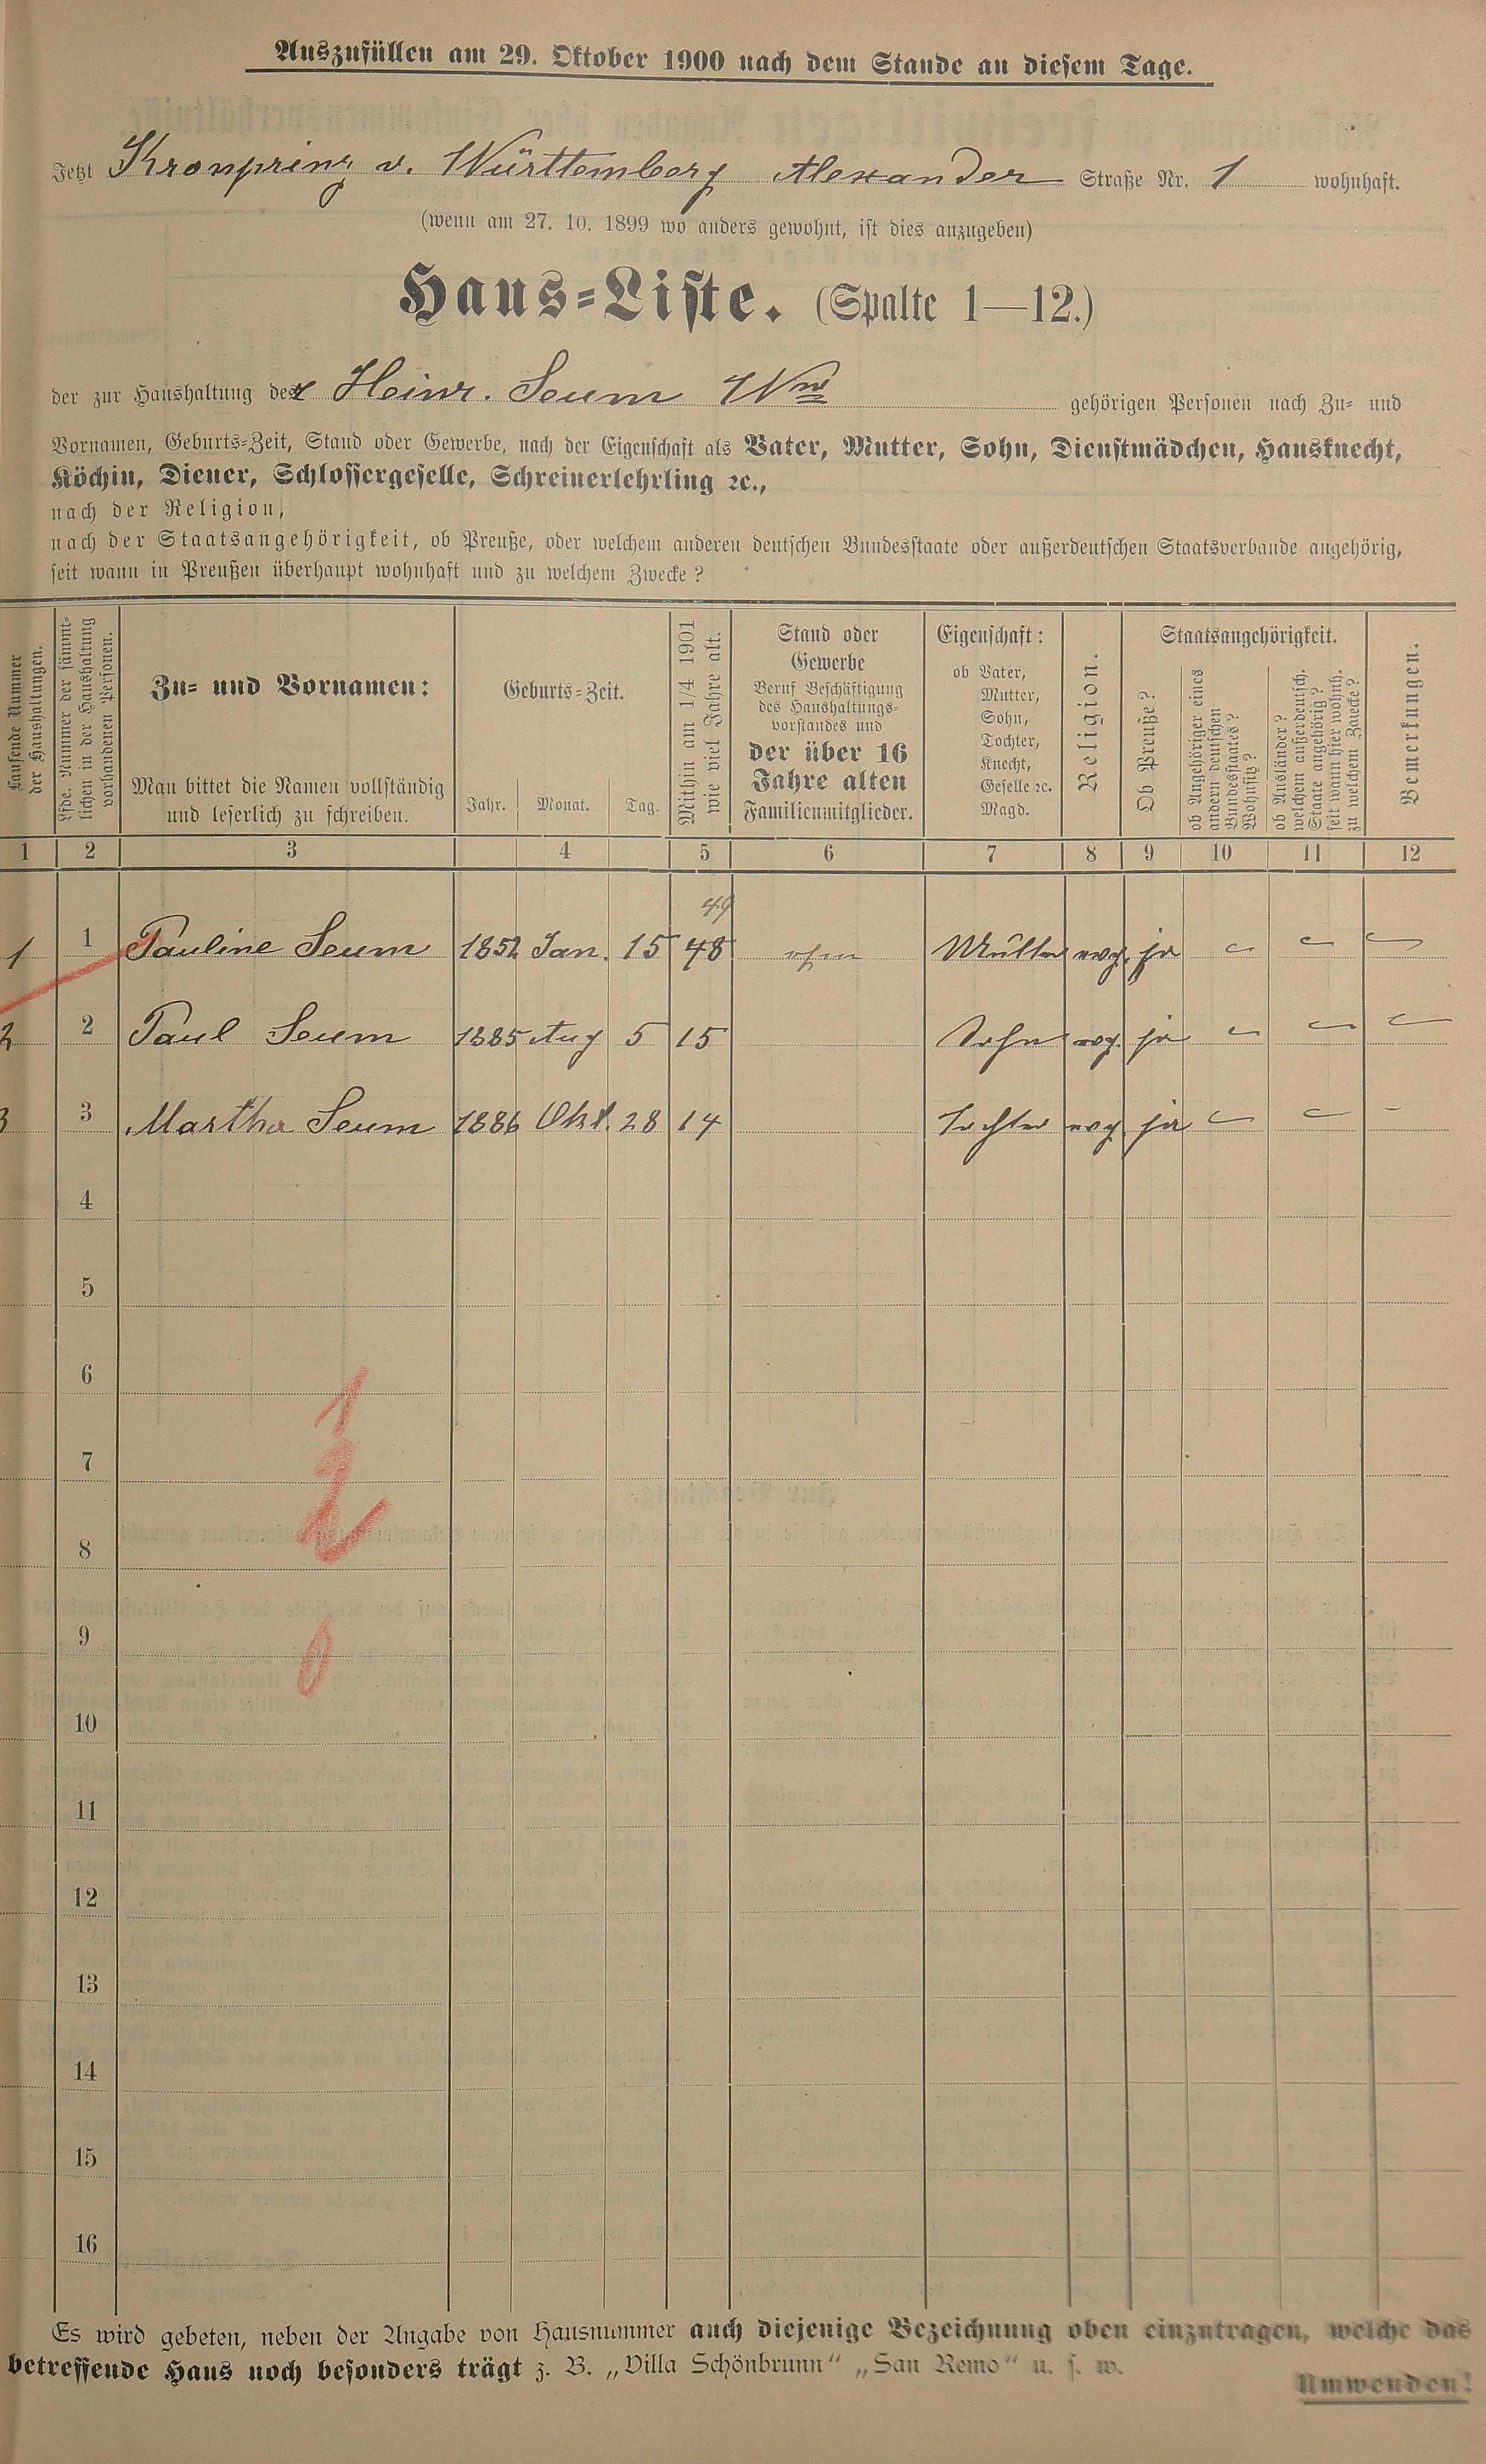 Auszufüllen am 29. Oktober 1900 nach dem Stande an diesem Tage.
Jetzt Kronprinz v. Württemberg Alexander Straße Nr. 1 wohnhaft.
(wenn am 27. 10. 1899 wo anders gewohnt, ist dies anzugeben)
Haus-Liste. (Spalte 1—12.)
der zur Haushaltung der Heinr. Seum Wwe gehörigen Personen nach Zu- und
Vornamen, Geburts-Zeit, Stand oder Gewerbe, nach der Eigenschaft als Vater, Mutter, Sohn, Dienstmädchen, Hausknecht,
Köchin, Diener, Schlossergeselle, Schreinerlehrling ꝛc.,
nach der Religion,
nach der Staatsangehörigkeit, ob Preuße, oder welchem anderen deutschen Bundesstaate oder außerdeutschen Staatsverbande angehörig,
seit wann in Preußen überhaupt wohnhaft und zu welchem Zwecke?
Laufende Nummer
der Haushaltungen.
Lfde. Nummer der sämmt-
lichen in der Haushaltung
vorhandenen Personen.
Zu- und Vornamen:
Man bittet die Namen vollständig
und leserlich zu schreiben.
Geburts-Zeit.
Jahr. Monat. Tag.
Mithin am 1/4 1901
wie viel Jahre alt.
Stand oder
Gewerbe
Beruf Beschäftigung
des Haushaltungs-
vorstandes und
der über 16
Jahre alten
Familienmitglieder.
Eigenschaft:
ob Vater,
Mutter,
Sohn,
Tochter,
Knecht,
Geselle ꝛc.
Magd.
Religion.
Staatsangehörigkeit.
Ob Preuße?
ob Angehöriger eines
andern deutschen
Bundesstaates?
Wohnsitz?
ob Ausländer?
welchem außerdeutsch.
Staate angehörig?
seit wann hier wohnh.
zu welchem Zwecke?
Bemerkungen.
1 2 3 4 5 6 7 8 9 10 11 12
49
1 1 Pauline Seum 1852 Jan. 15 48 ohne Mutter evg. ja
2 2 Paul Seum 1885 Aug 5 15 Sohn evg. ja
3 3 Martha Seum 1886 Okt. 28 14 Tochter evg ja
4
5
6
1
7
2
8
9
0
10
11
12
13
14
15
16
Es wird gebeten, neben der Angabe von Hausnummer auch diejenige Bezeichnung oben einzutragen, welche das
betreffende Haus noch besonders trägt z. B. „Villa Schönbrunn“ „San Remo“ u. s. w.
Umwenden!